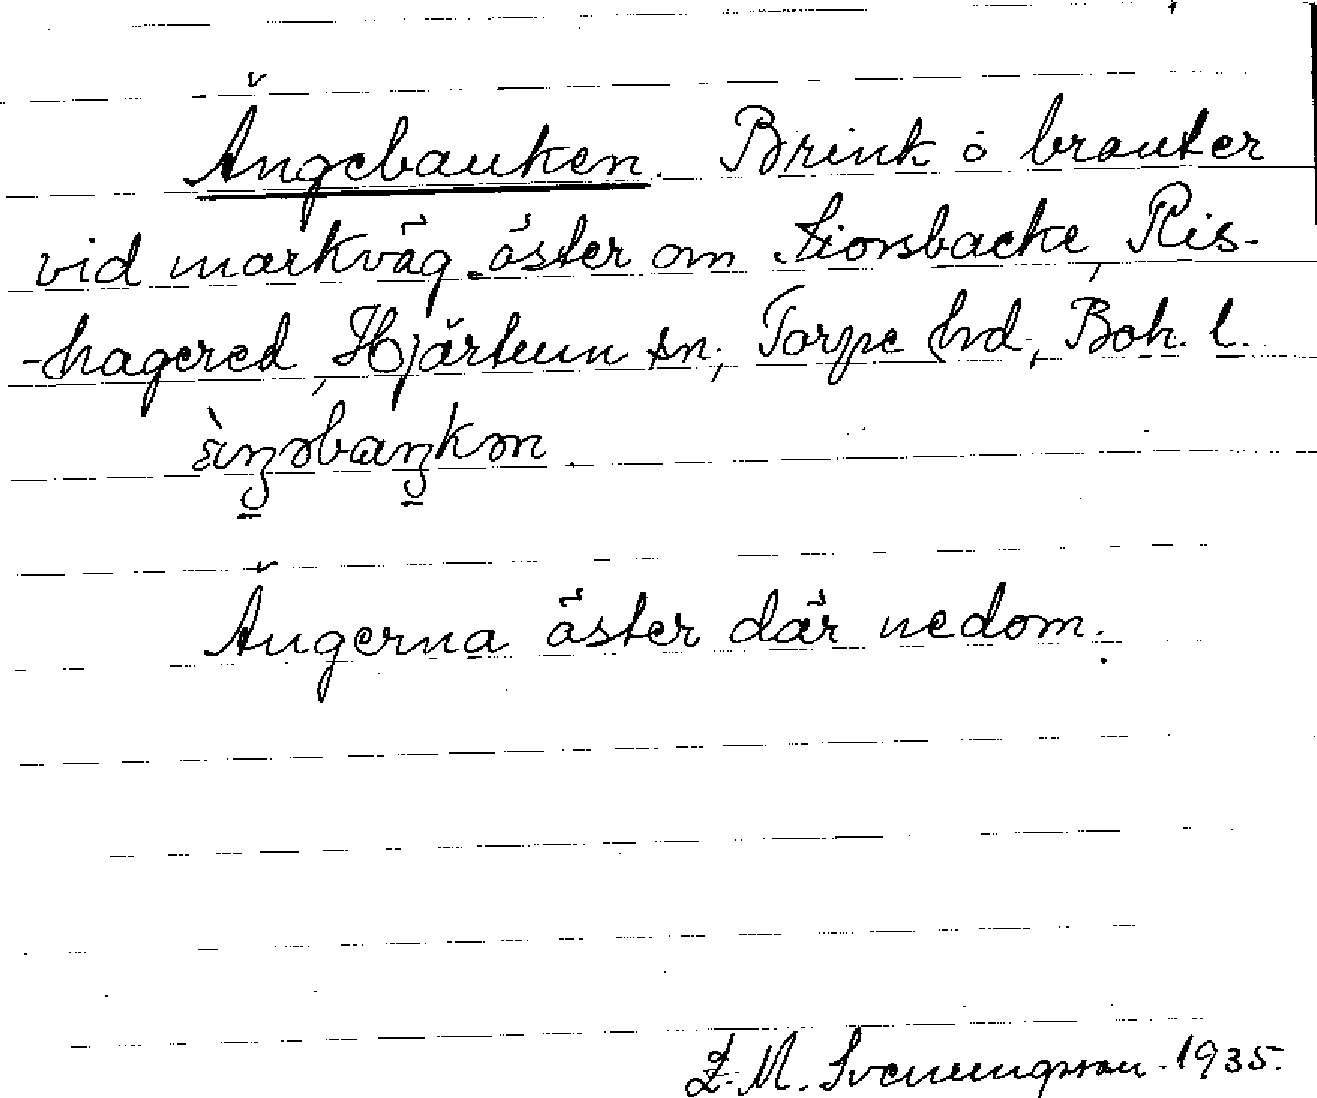 Ängebanken. Brink o branter
vid markväg öster om Lionsbacke, Ris-
-hagered, Hjärtum sn, Torpe hd, Boh. l.
Ängerna öster där nedom.
Z. M. Svenungsson. 1935.